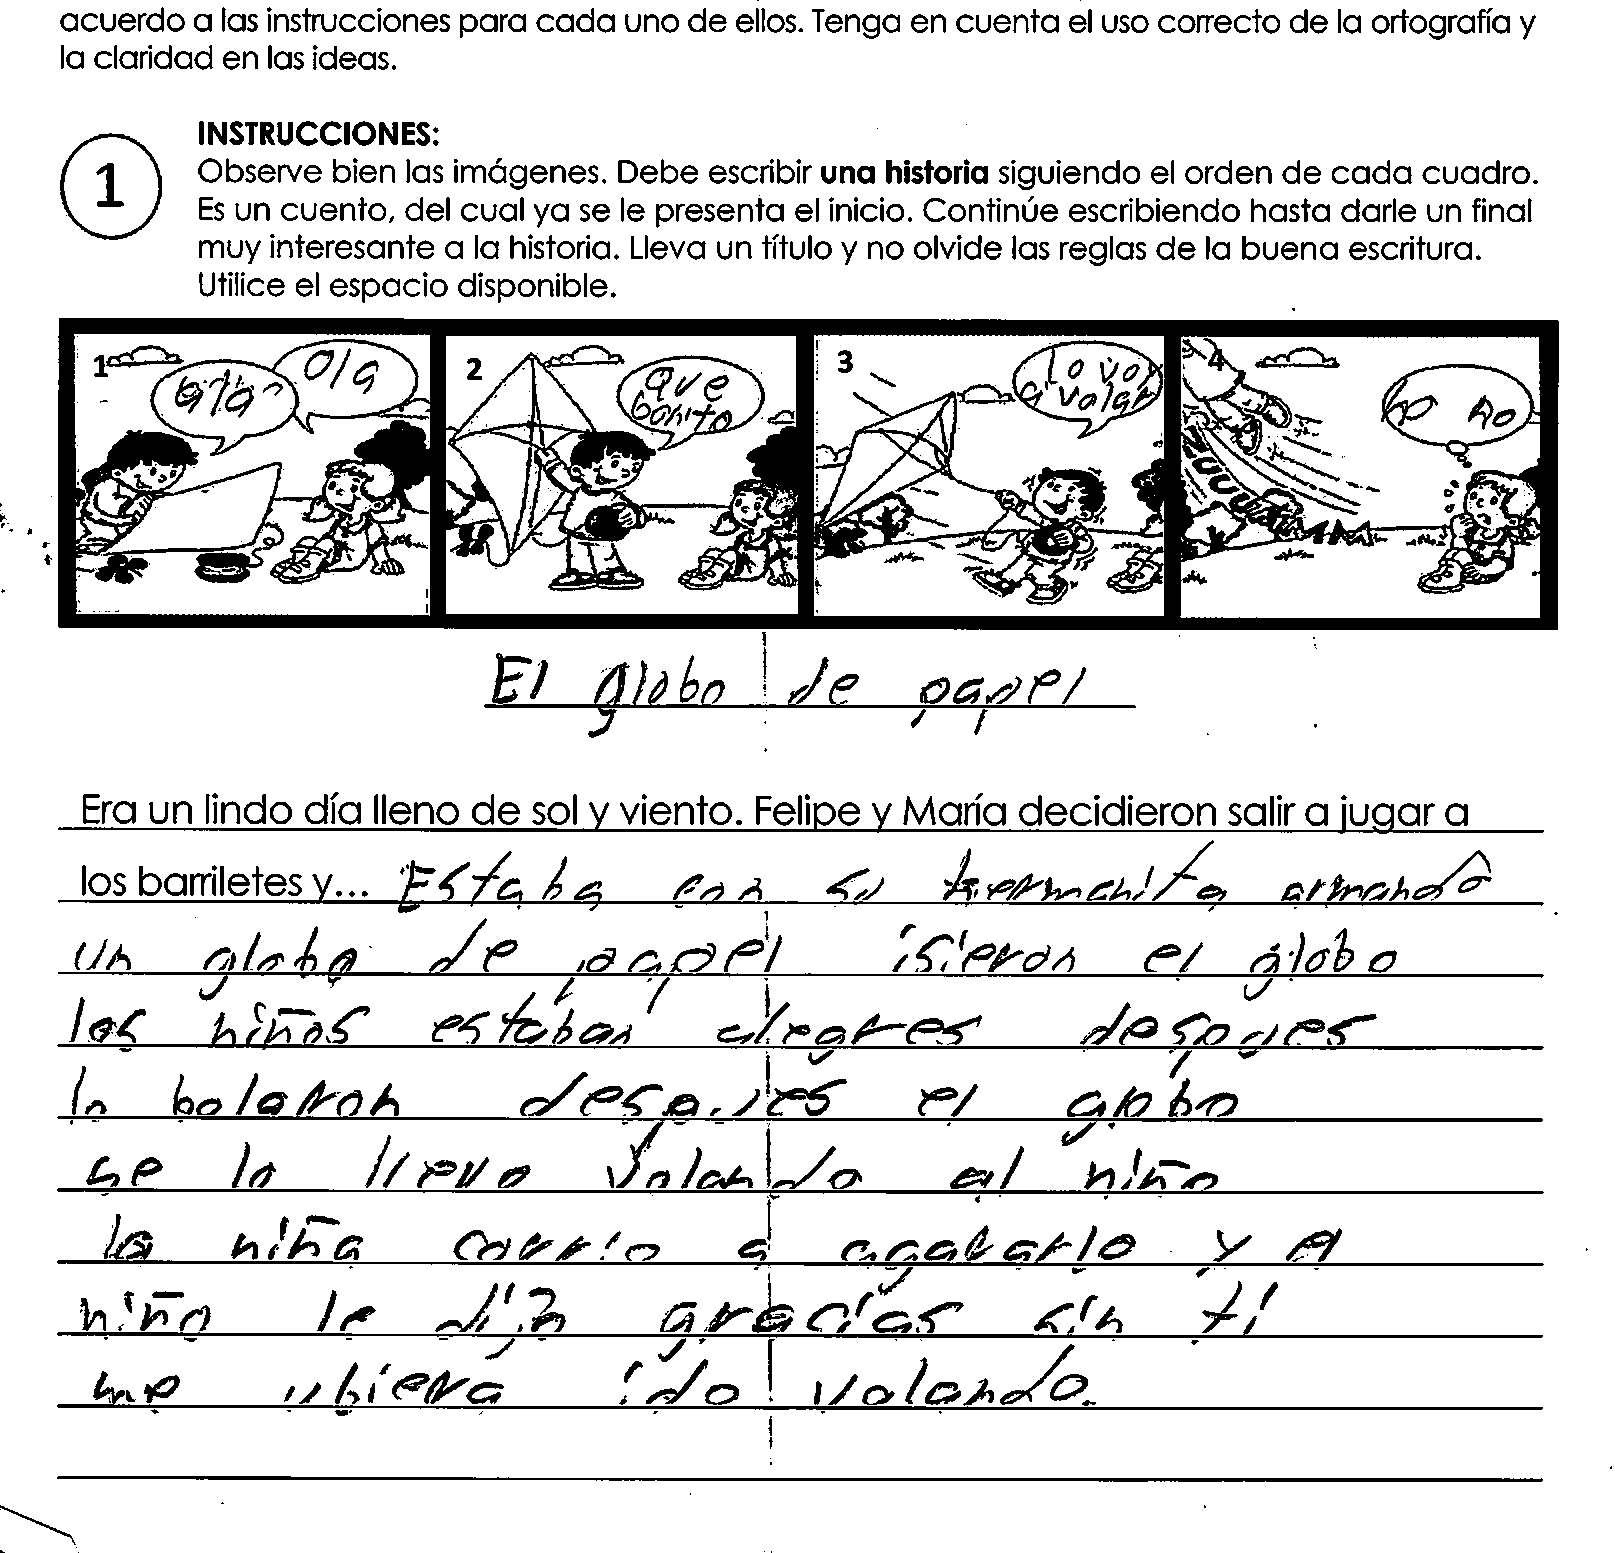 acuerdo a las instrucciones para cada uno de ellos. Tenga en cuenta el uso correcto de la ortografía y
la claridad en las ideas.
INSTRUCCIONES:
1
Observe bien las imágenes. Debe escribir una historia siguiendo el orden de cada cuadro.
Es un cuento, del cual ya se le presenta el inicio. Continúe escribiendo hasta darle un final
muy interesante a la historia. Lleva un título y no olvide las reglas de la buena escritura.
Utilice el espacio disponible.
1
Ola
2
que
bonito
3
lo voy
a volar
4
no no
ZUUUUM
El globo de papel
Era un lindo día lleno de sol y viento. Felipe y María decidieron salir a jugar a
los barriletes y... Estaba con su hermanita armando
un globo de papel isieron el globo
los niños estaban alegres despues
lo bolaron despues el globo
se lo llevo volando al niño
la niña corrio a agararlo y el
niño le dijo gracias sin ti
me ubiera ido volando.